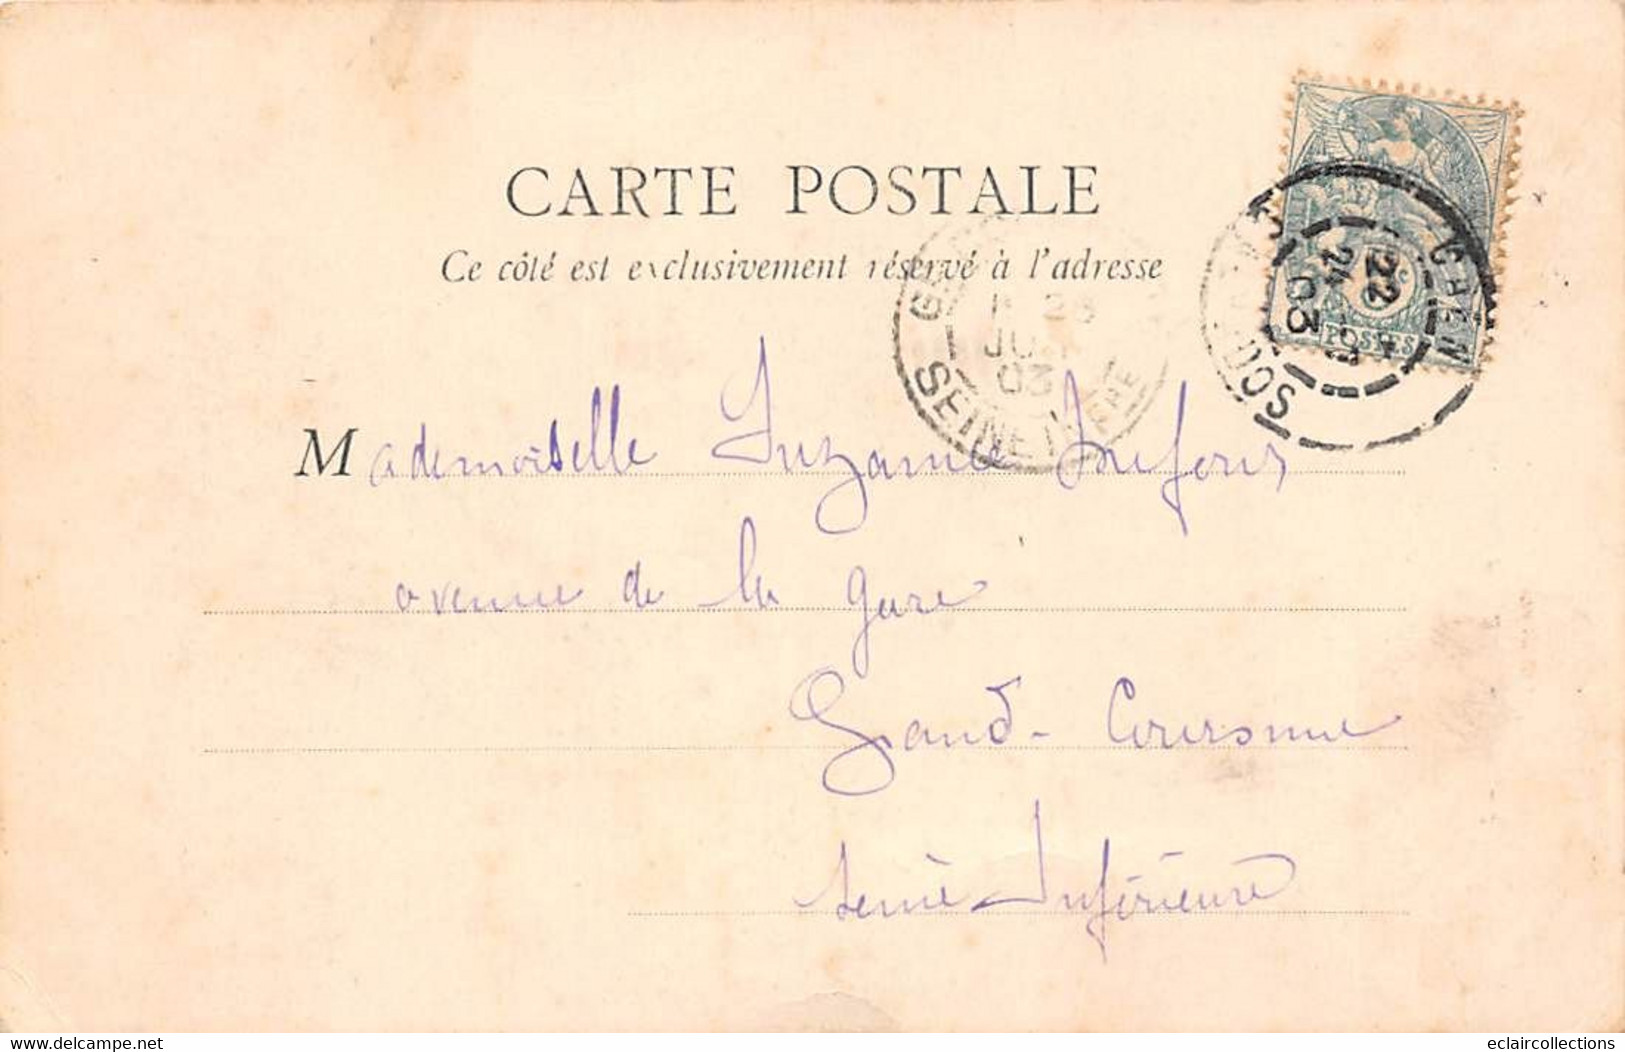 CARTE POSTALE
Ce côté est exclusivement réservé à l'adresse
Mademoiselle Suzanne Dufour
avenue de la gare
Grand-Couronne
Seine Inférieure
22
24
03
POSTES
SEINE INFRE
03
www.delcampe.net
eclaircollections